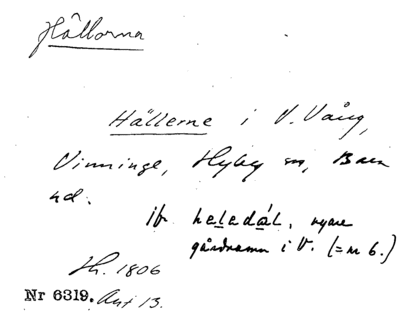 Hällorna
Hällerne i V. Vång,
Vinninge, Hyby sn, Bara
hd.
jfr heledál, nyare
gårdnamn i V. (= nr 6.)
Hh. 1806
Nr 6319. Ant 13.